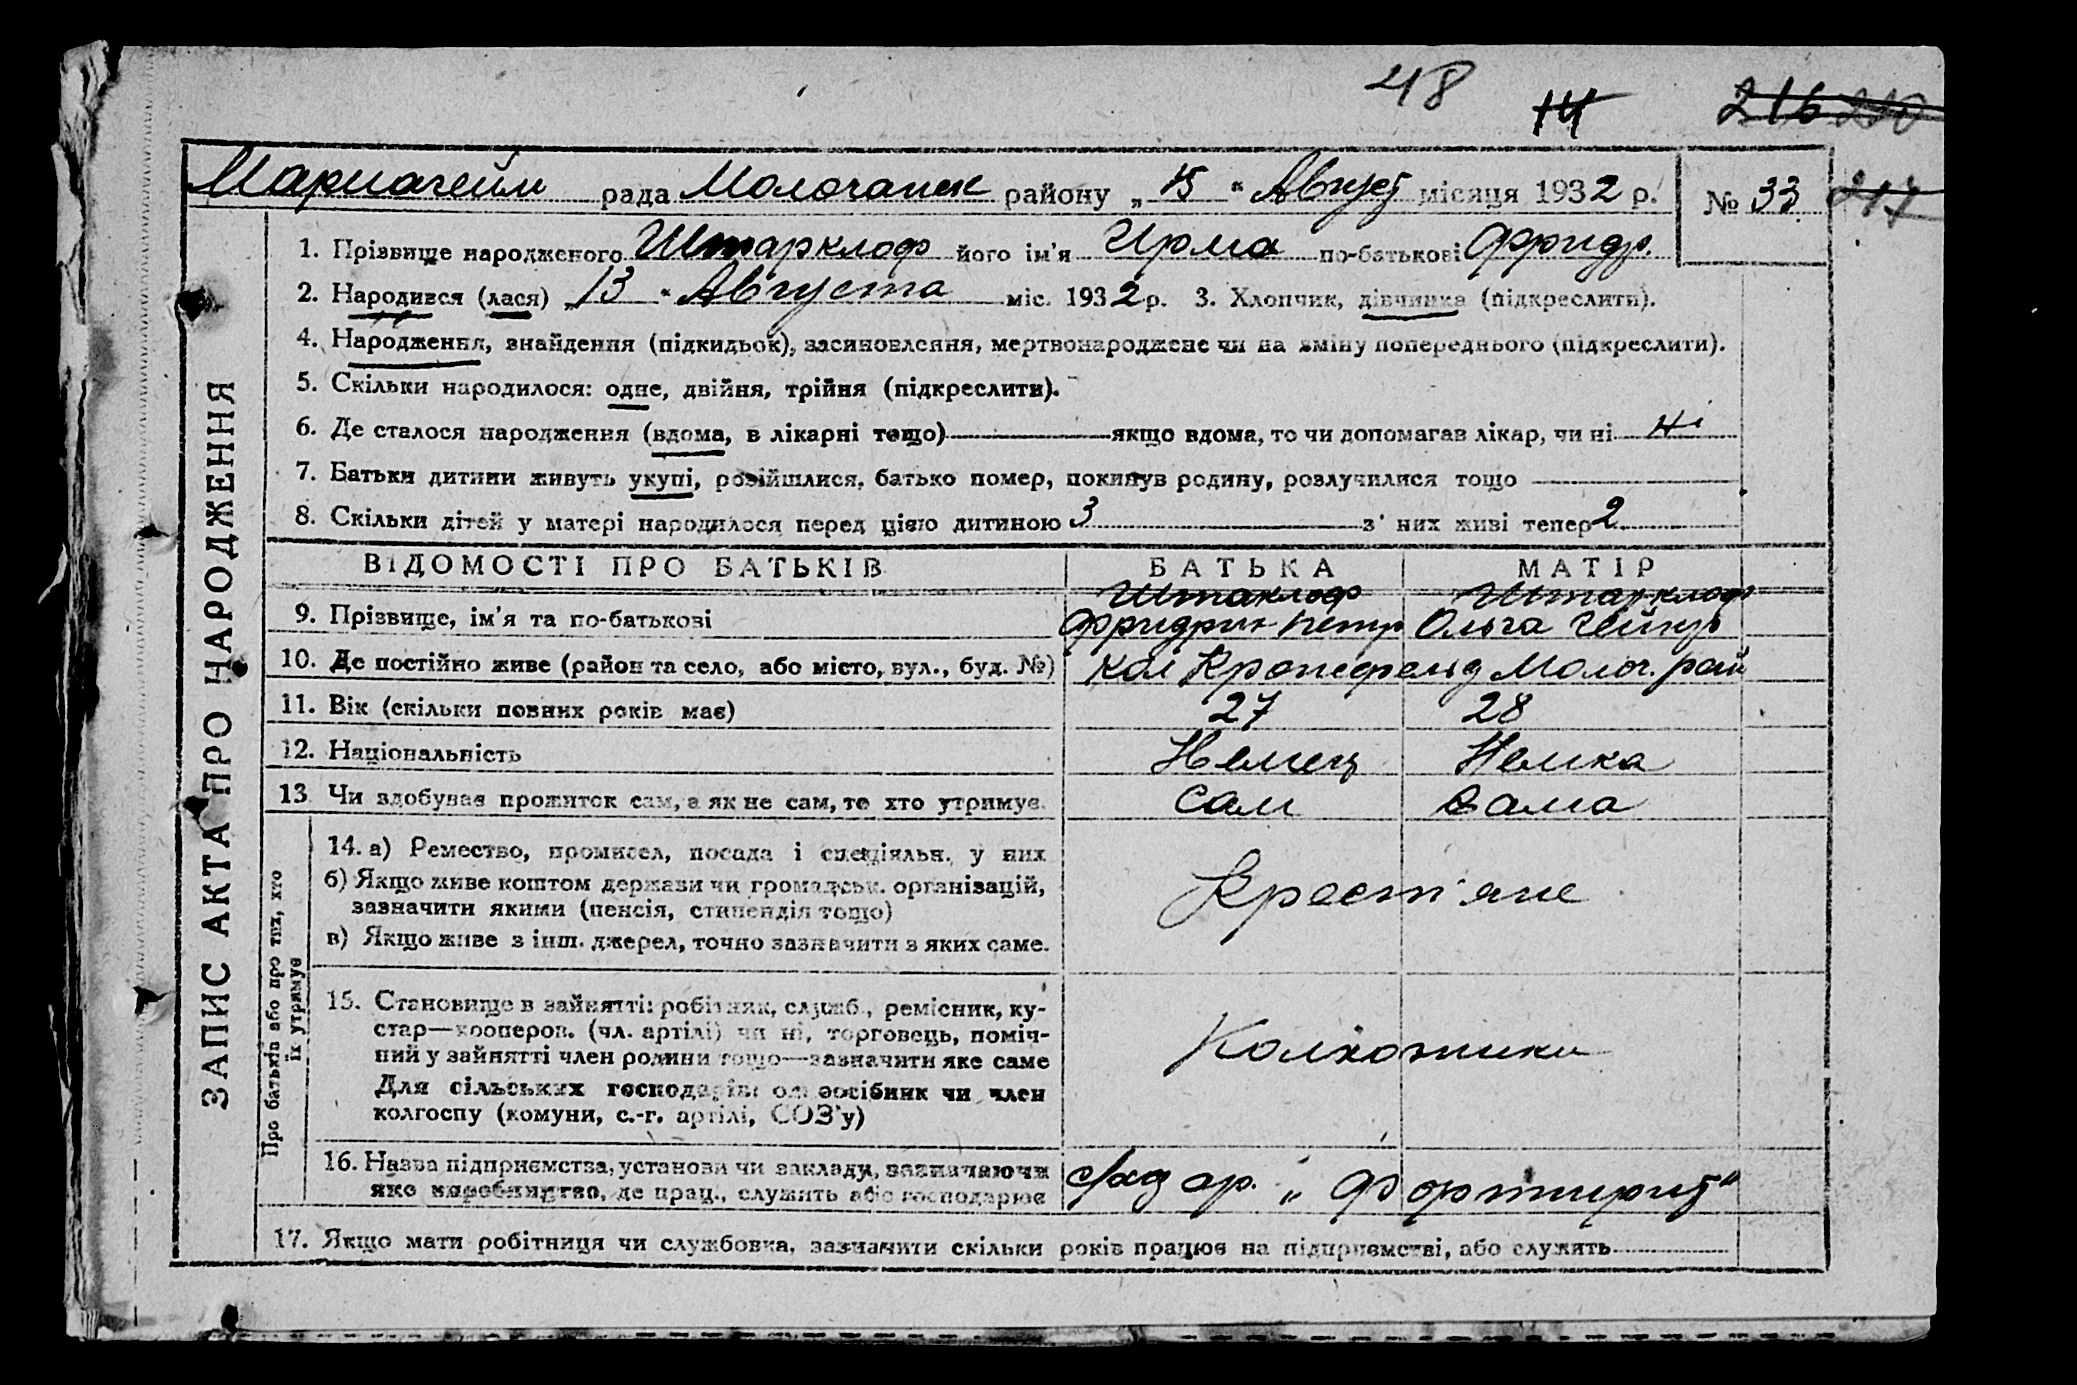 48
14
216 210
Мариагейм рада Молочанск району „ 15 “ Август місяця 1932 р. № 33 217
1. Прізвище народженого Штарклоф його ім’я Ирма по-батькові Фридр.
2. Народився (лася) „ 13 “ Августа міс. 1932 р. 3. Хлопчик, дівчинка (підкреслити).
4. Народження, знайдення (підкидьок), засиновлення, мертвонароджене чи на зміну попереднього (підкреслити).
5. Скільки народилося: одне, двійня, трійня (підкреслити).
6. Де сталося народження (вдома, в лікарні тощо) якщо вдома, то чи допомагав лікар, чи ні ні
7. Батьки дитини живуть укупі, розійшлися, батько помер, покинув родину, розлучилися тощо
8. Скільки дітей у матері народилося перед цією дитиною 3 з них живі тепер 2
ЗАПИС АКТА ПРО НАРОДЖЕННЯ
ВІДОМОСТІ ПРО БАТЬКІВ БАТЬКА МАТІР
Штаклоф Штарклоф
9. Прізвище, ім’я та по-батькові Фридрих Петр Ольга Гейнр
10. Де постійно живе (район та село, або місто, вул., буд. №) кол Кронсфельд Молоч. рай
11. Вік (скільки повних років має) 27 28
12. Національність Немец Немка
13. Чи здобуває прожиток сам, а як не сам, то хто утримує. Сам Сама
Про батьків або про тих, хто
їх утримує
14. а) Ремество, промисел, посада і спеціяльн. у них
б) Якщо живе коштом держави чи громадськ. організацій,
зазначити якими (пенсія, стипендія тощо)
Крест’яне
в) Якщо живе з інш. джерел, точно зазначити з яких саме.
15. Становище в зайнятті: робітник, служб., ремісник, ку-
стар—кооперов. (чл. артілі) чи ні, торговець, поміч-
ний у зайнятті член родини тощо—зазначити яке саме
Колхозники
Для сільських господарів: одноосібник чи член
колгоспу (комуни, с.-г. артілі, СОЗ’у)
16. Назва підприємства, установи чи закладу, зазначаючи
яке виробництво, де прац., служить або господарює
с/хоз ар. „
17. Якщо мати робітниця чи службовка, зазначити скільки років працює на підприємстві, або служить